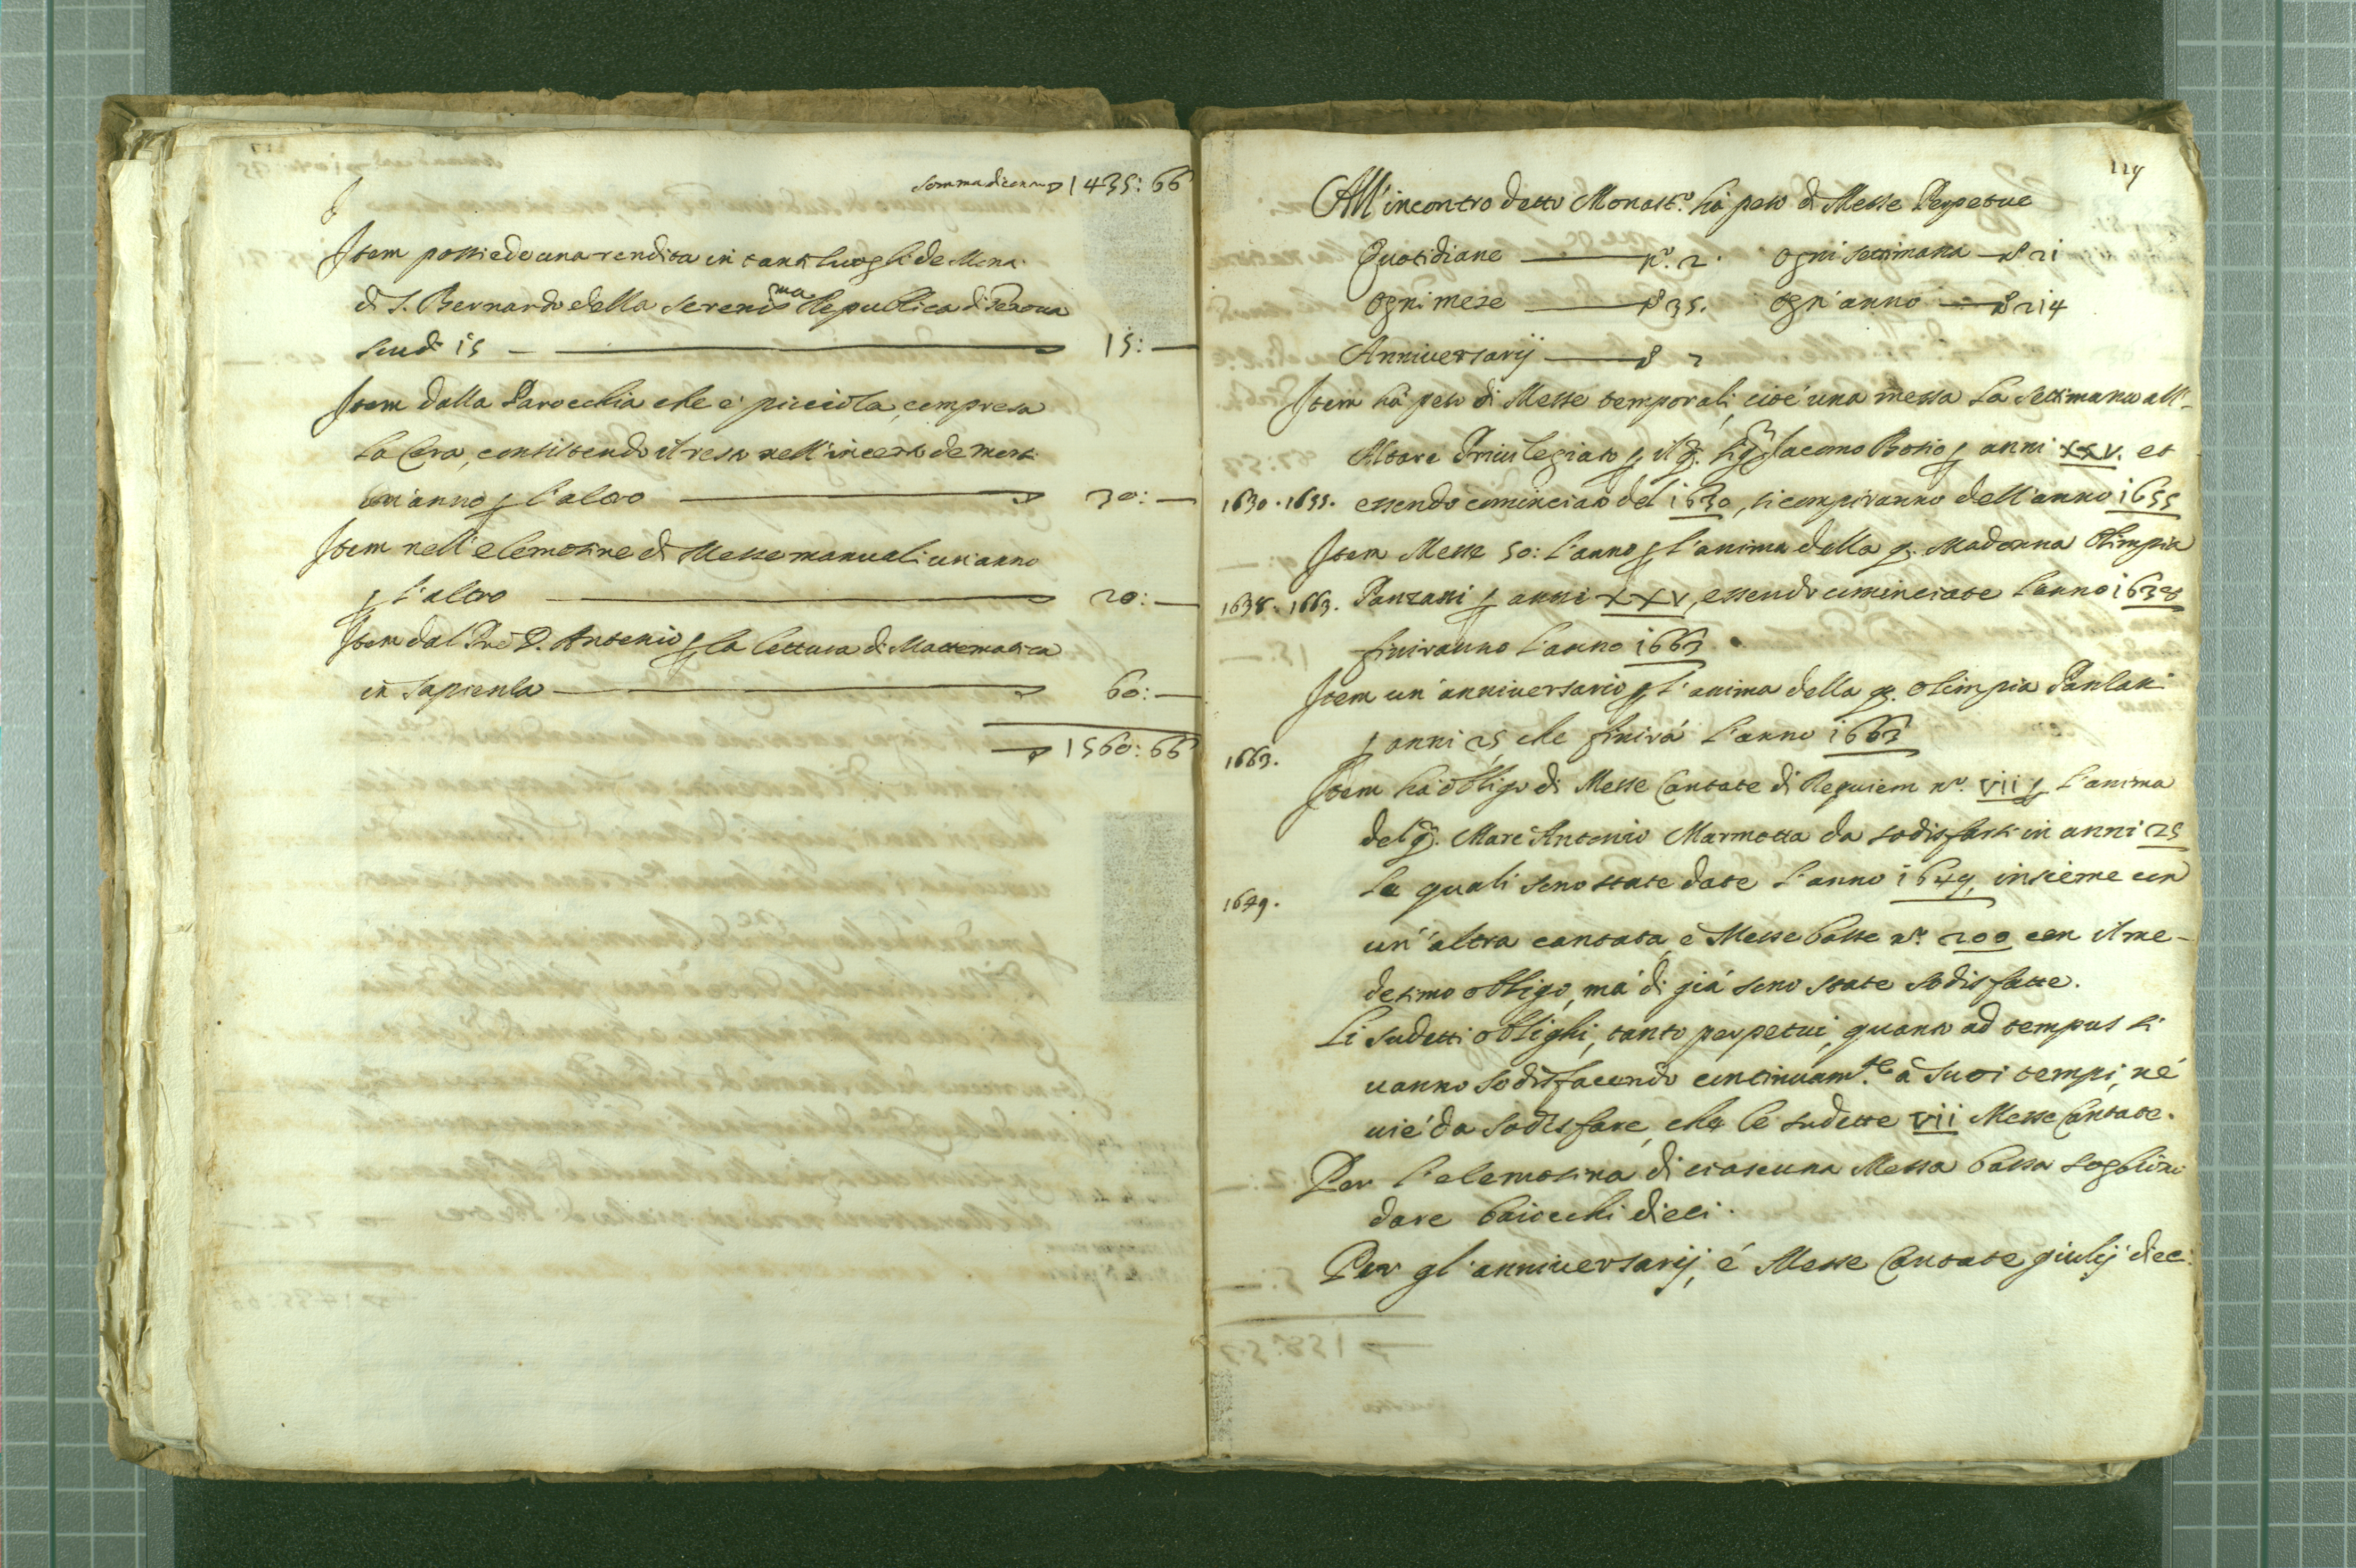 Somma di contro ▽ 1435:66
Item possiede una rendita in tanti luoghi de Mona.
di S. Bernardo della Sereniss.ma Republica di Genoua
scudi 15 — 15:—
Item dalla Parocchia che è picciola, compresa
la Cera, consistendo il resto nell'incerti de morti
un'anno p l'altro — 30:—
Item nell'elemosine di Messe manuali un'anno
p l'altro — 20:—
Item dal Pre D. Antonio p la lettura di Mattematica
in Sapienza — 60:—
▽ 1560:66
119
All'incontro detto Monast.o hà peso di Messe Perpetue
Quotidiane — n.o 2. ogni settimana — n.o 21
ogni mese — n.o 35. ogn'anno — n.o 214
Anniversarij — n.o 2
Item hà peso di Messe temporali, cioè una messa la settimana all'-
Altare Priuilegiato p il q. Sig.r Iacomo Bosio p anni XXV. et
1630.1655. essendo cominciato del 1630, si compiranno dell'anno 1655
Item Messe 50: l'anno p l'anima della q. Madonna Olimpia
1638.1663. Panzani p anni XXV, essendo cominciate l'anno 1638
finiranno l'anno 1663.
Item un'anniuersario p l'anima della q. Olimpia Panzani
1663. p anni 25 che finirà l'anno 1663
Item hà obligo di Messe Cantate di Requiem n.o VII p l'anima
del q. Marc'Antonio Marmotta da sodisfarsi in anni 25
1649. Le quali sono state date l'anno 1649, insieme con
un'altra cantata, e Messe basse n.o 200 con il me-
desimo obligo, mà di già sono state sodisfatte.
Li sudetti oblighi, tanto perpetui, quanto ad tempus si
uanno sodisfacendo continuam.te à suoi tempi, nè
ui è da sodisfare, che le sudette VII Messe Cantate.
Per l'elemosina di ciascuna Messa bassa sogliono
dare baiocchi dieci.
Per gl'anniuersarij, è Messe Cantate giulij dieci